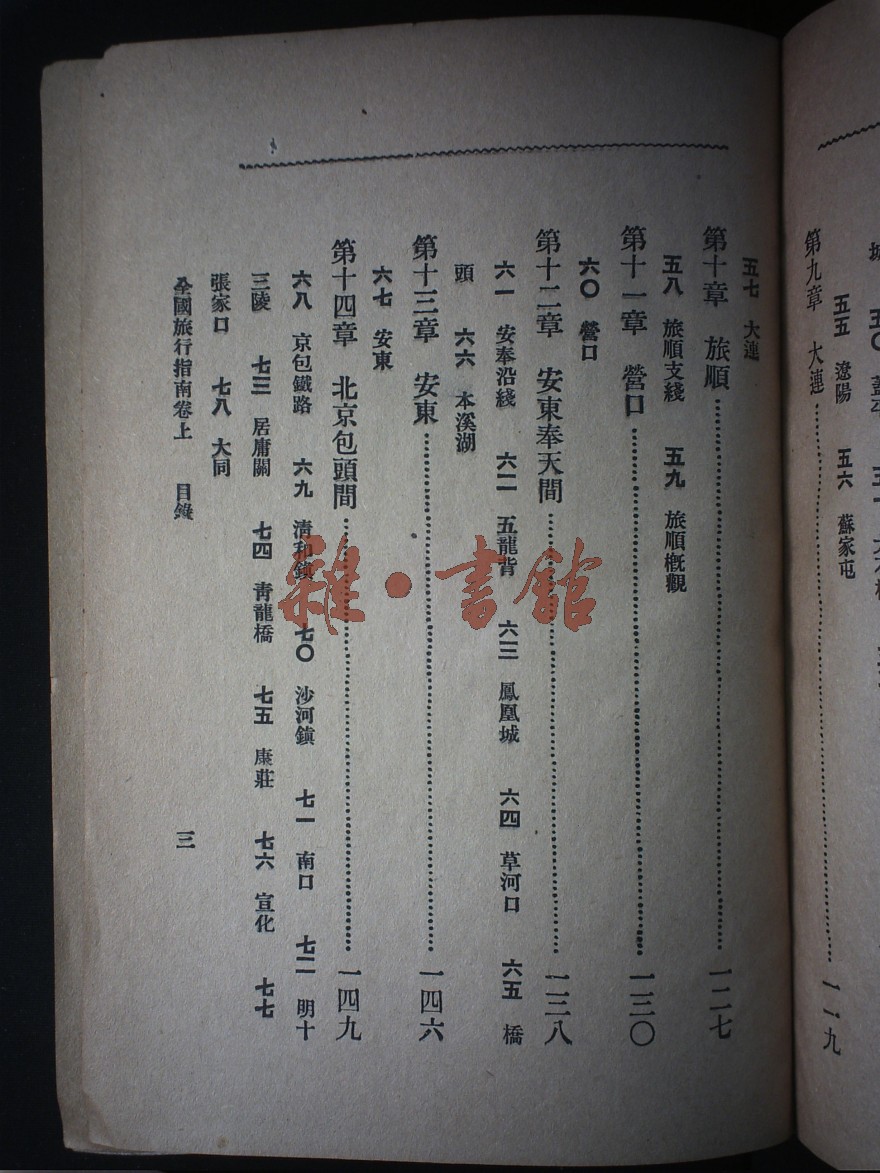 城　五〇　蓋平
五五　遼陽　五六　蘇家屯
第九章　大連……一一九
五七　大連
第十章　旅順……一二七
五八　旅順支綫　五九　旅順槪觀
第十一章　營口……一三〇
六〇　營口
第十二章　安東奉天間……一三八
六一　安奉沿綫　六二　五龍背　六三　鳳凰城　六四　草河口　六五　橋
頭　六六　本溪湖
第十三章　安東……一四六
六七　安東
第十四章　北京包頭間……一四九
六八　京包鐵路　六九　淸和鎭　七〇　沙河鎭　七一　南口　七二　明十
三陵　七三　居庸關　七四　靑龍橋　七五　康莊　七六　宣化　七七
張家口　七八　大同
全國旅行指南卷上　目錄　三
雜·書館